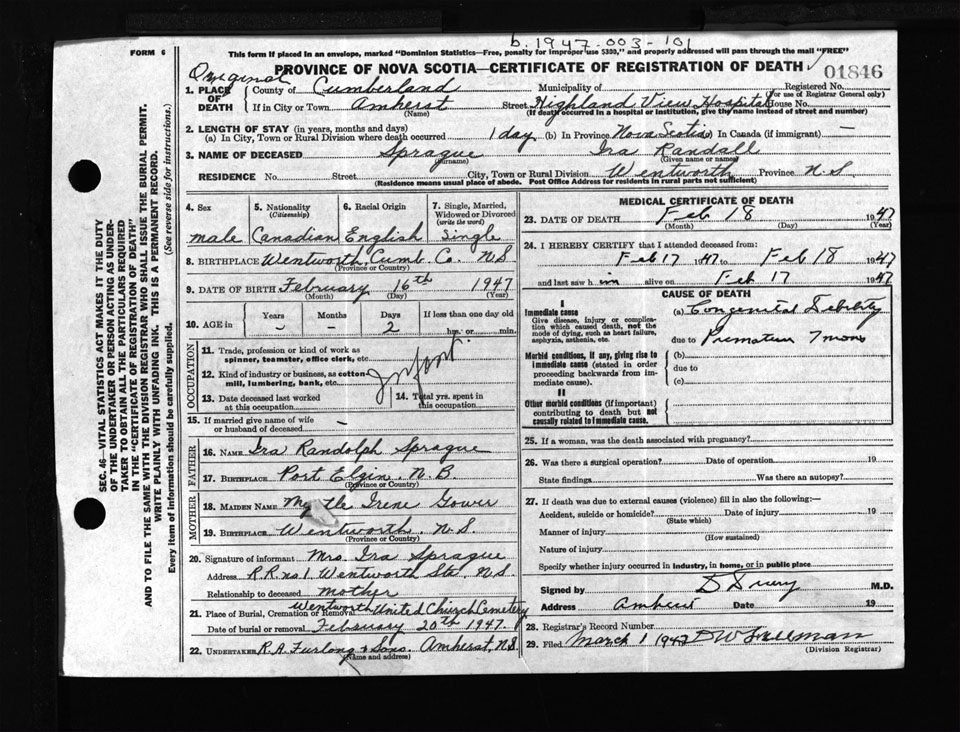 b. 1947-003-101
FORM 6
This form if placed in an envelope, marked "Dominion Statistics—Free, penalty for improper use $300," and properly addressed will pass through the mail "FREE"
PROVINCE OF NOVA SCOTIA—CERTIFICATE OF REGISTRATION OF DEATH
01846
Original
1. PLACE OF DEATH
County of Cumberland Municipality of Registered No.
(For use of Registrar General only)
If in City or Town Amherst Street Highland View Hospital House No.
(Name) (If death occurred in a hospital or institution, give the name instead of street and number)
2. LENGTH OF STAY (in years, months and days)
(a) In City, Town or Rural Division where death occurred 1 day (b) In Province Nova Scotia (c) In Canada (if immigrant) —
3. NAME OF DECEASED Sprague Ira Randall
(Surname) (Given name or names)
RESIDENCE No. Street City, Town or Rural Division Wentworth Province N.S.
(Residence means usual place of abode. Post Office Address for residents in rural parts not sufficient)
4. Sex
male
5. Nationality
(Citizenship)
Canadian
6. Racial Origin
English
7. Single, Married, Widowed or Divorced
(write the word)
Single
8. BIRTHPLACE Wentworth, Cumb. Co. N.S
(Province or Country)
9. DATE OF BIRTH February 16th 1947
(Month) (Day) (Year)
10. AGE in
Years Months Days If less than one day old
- - 2 hrs. or min.
OCCUPATION
11. Trade, profession or kind of work as spinner, teamster, office clerk, etc.
12. Kind of industry or business, as cotton mill, lumbering, bank, etc.
Infant
13. Date deceased last worked at this occupation
14. Total yrs. spent in this occupation
15. If married give name of wife or husband of deceased —
FATHER
16. NAME Ira Randolph Sprague
17. BIRTHPLACE Port Elgin, N.B.
(Province or Country)
MOTHER
18. MAIDEN NAME Myrtle Irene Gower
19. BIRTHPLACE Wentworth, N.S.
(Province or Country)
20. Signature of informant Mrs. Ira Sprague
Address R.R. no 1. Wentworth Sta. N.S.
Relationship to deceased mother
21. Place of Burial, Cremation or Removal Wentworth United Church Cemetery
Date of burial or removal February 20th 1947.
22. UNDERTAKER R.A. Furlong & Sons. Amherst, N.S.
(Name and address)
MEDICAL CERTIFICATE OF DEATH
23. DATE OF DEATH Feb 18 1947
(Month) (Day) (Year)
24. I HEREBY CERTIFY that I attended deceased from:
Feb 17 1947 to Feb 18 1947
and last saw him alive on Feb 17 1947
CAUSE OF DEATH
I
Immediate cause
Give disease, injury or complication which caused death, not the mode of dying, such as heart failure, asphyxia, asthenia, etc.
(a) Congenital Debility
due to Premature 7 mons
Morbid conditions, if any, giving rise to immediate cause (stated in order proceeding backwards from immediate cause).
(b)
due to
(c)
II
Other morbid conditions (if important) contributing to death but not causally related to immediate cause.
25. If a woman, was the death associated with pregnancy?
26. Was there a surgical operation? Date of operation 19
State findings Was there an autopsy?
27. If death was due to external causes (violence) fill in also the following:—
Accident, suicide or homicide? Date of injury 19
(State which)
Manner of injury
(How sustained)
Nature of injury
Specify whether injury occurred in industry, in home, or in public place
Signed by D Drury M.D.
Address Amherst Date 19
28. Registrar's Record Number
29. Filed March 1 1947 DW Freeman
(Division Registrar)
SEC. 46—VITAL STATISTICS ACT MAKES IT THE DUTY
OF THE UNDERTAKER OR PERSON ACTING AS UNDERTAKER
TO OBTAIN ALL THE PARTICULARS REQUIRED
IN THE "CERTIFICATE OF REGISTRATION OF DEATH"
AND TO FILE THE SAME WITH THE DIVISION REGISTRAR WHO SHALL ISSUE THE BURIAL PERMIT.
WRITE PLAINLY WITH UNFADING INK. THIS IS A PERMANENT RECORD.
Every item of information should be carefully supplied. (See reverse side for instructions.)